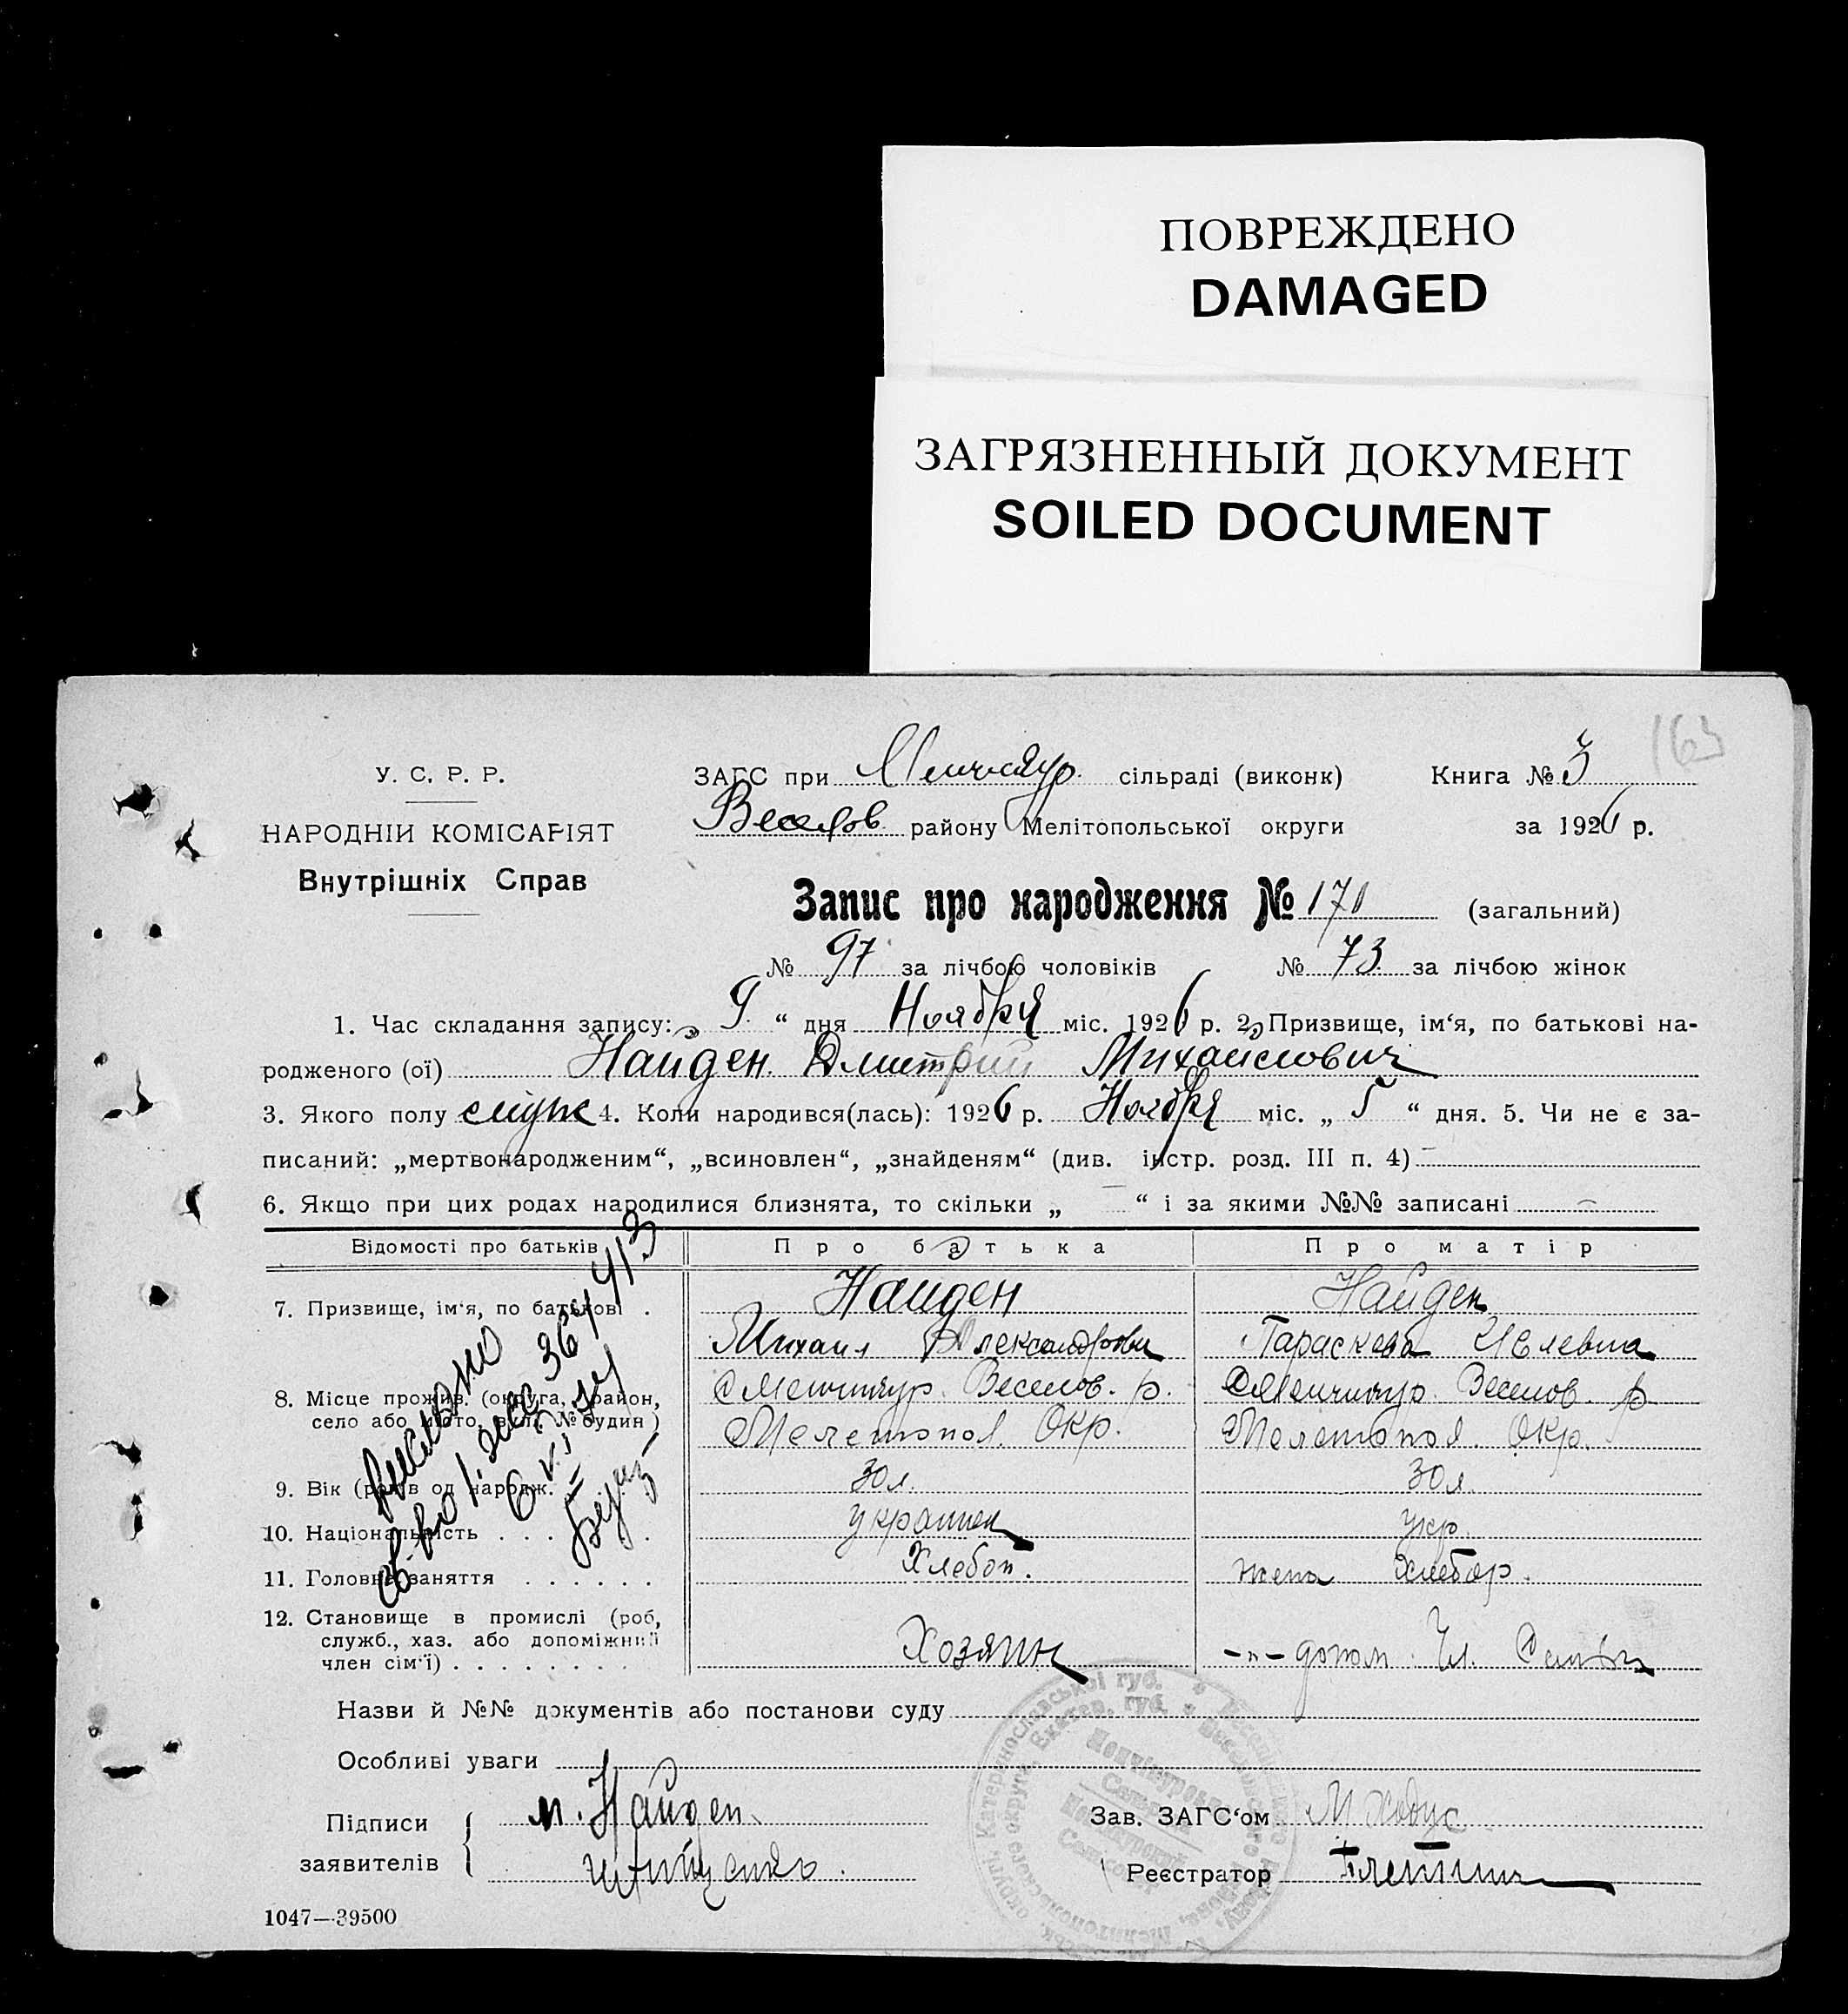 ПОВРЕЖДЕНО
DAMAGED
ЗАГРЯЗНЕННЫЙ ДОКУМЕНТ
SOILED DOCUMENT
163
У. С. Р. Р.
НАРОДНІЙ КОМІСАРІЯТ
Внутрішніх Справ
ЗАГС при Менчикур. сільраді (виконк) Книга № 3
Веселов району Мелітопольської округи за 1926 р.
Запис про народження № 170 (загальний)
№ 97 за лічбою чоловіків № 73 за лічбою жінок
1. Час складання запису: „ 9 “ дня Ноября міс. 1926 р. 2. Призвище, ім‘я, по батькові на-
родженого (ої) Найден Дмитрий Михайлович
3. Якого полу муж 4. Коли народився(лась): 1926 р. Ноября міс. „ 5 “ дня. 5. Чи не є за-
писаний: „мертвонародженим“, „всиновлен“, „знайденям“ (див. інстр. розд. III п. 4) —
6. Якщо при цих родах народилися близнята, то скільки „ — “ і за якими №№ записані —
Відомості про батьків Про батька Про матір
7. Призвище, ім‘я, по батькові . Найден Найден
Михаил Александрови Параскева
8. Місце прожив. (округа, район, Менчикур. Веселов. р. Менчикур. Веселов. р
село або місто, вул. № будин ) Мелетопол. Окр. Мелетопол. Окр.
9. Вік (років од народж. 30 л. 30 л
10. Національність . . . . украинец укр.
11. Головне заняття . . . . . . Хлебоп. жена хлебор.
12. Становище в промислі (роб,
служб., хаз. або допоміжний Хозяин -"- допом. Чл. Семьи
член сім‘ї) . . . . . . . .
Назви й №№ документів або постанови суду
Особливі уваги
Підписи м. Найден Зав. ЗАГС‘ом
заявителів Реєстратор
1047—39500